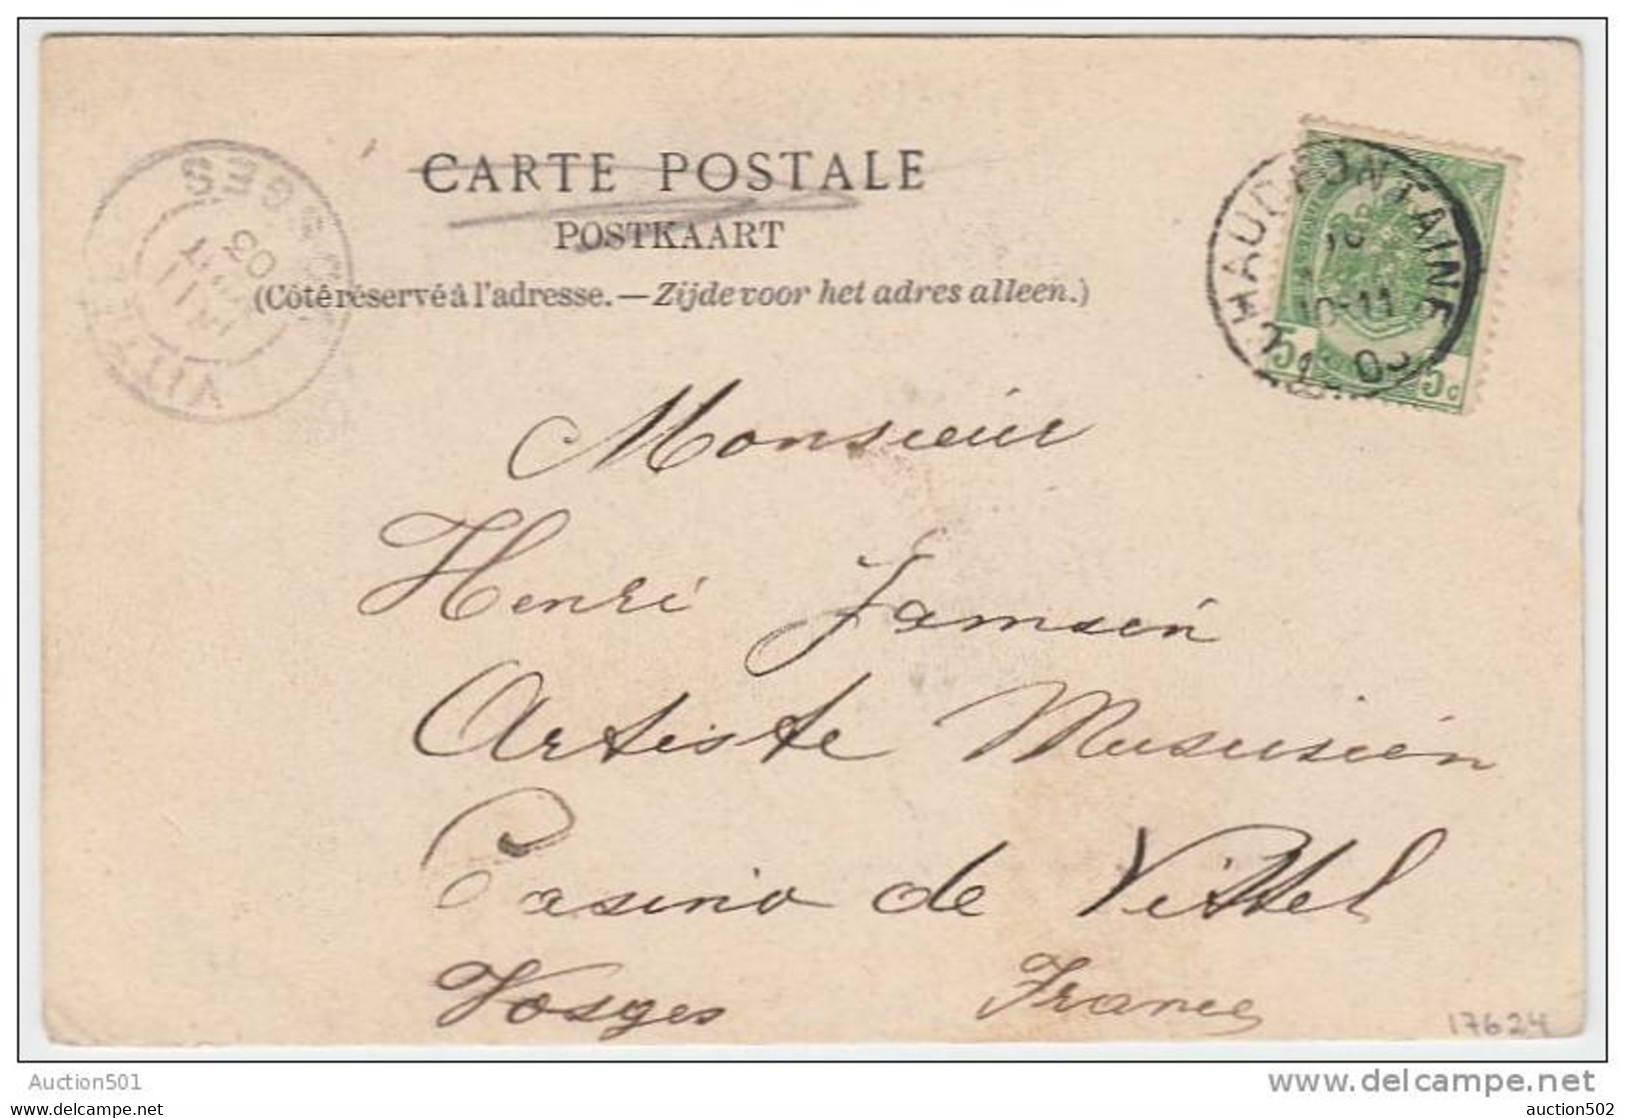 CARTE POSTALE
POSTKAART
(Côté réservé à l'adresse.—Zijde voor het adres alleen.)
VOSGES
03
VITTEL
CHAUDFONTAINE
10-11
5c 5c
Monsieur
Henri Jamsen
Artiste Mususien
Casino de Vittel
Vosges France
17624
Auction501
www.delcampe.net
auction502